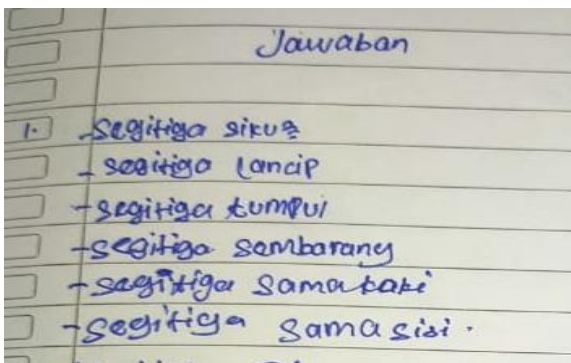 Jawaban
1. - Segitiga siku2
- segitiga Lancip
- segitiga tumpul
- segitiga sembarang
- segitiga samakaki
- Segitiga sama sisi.